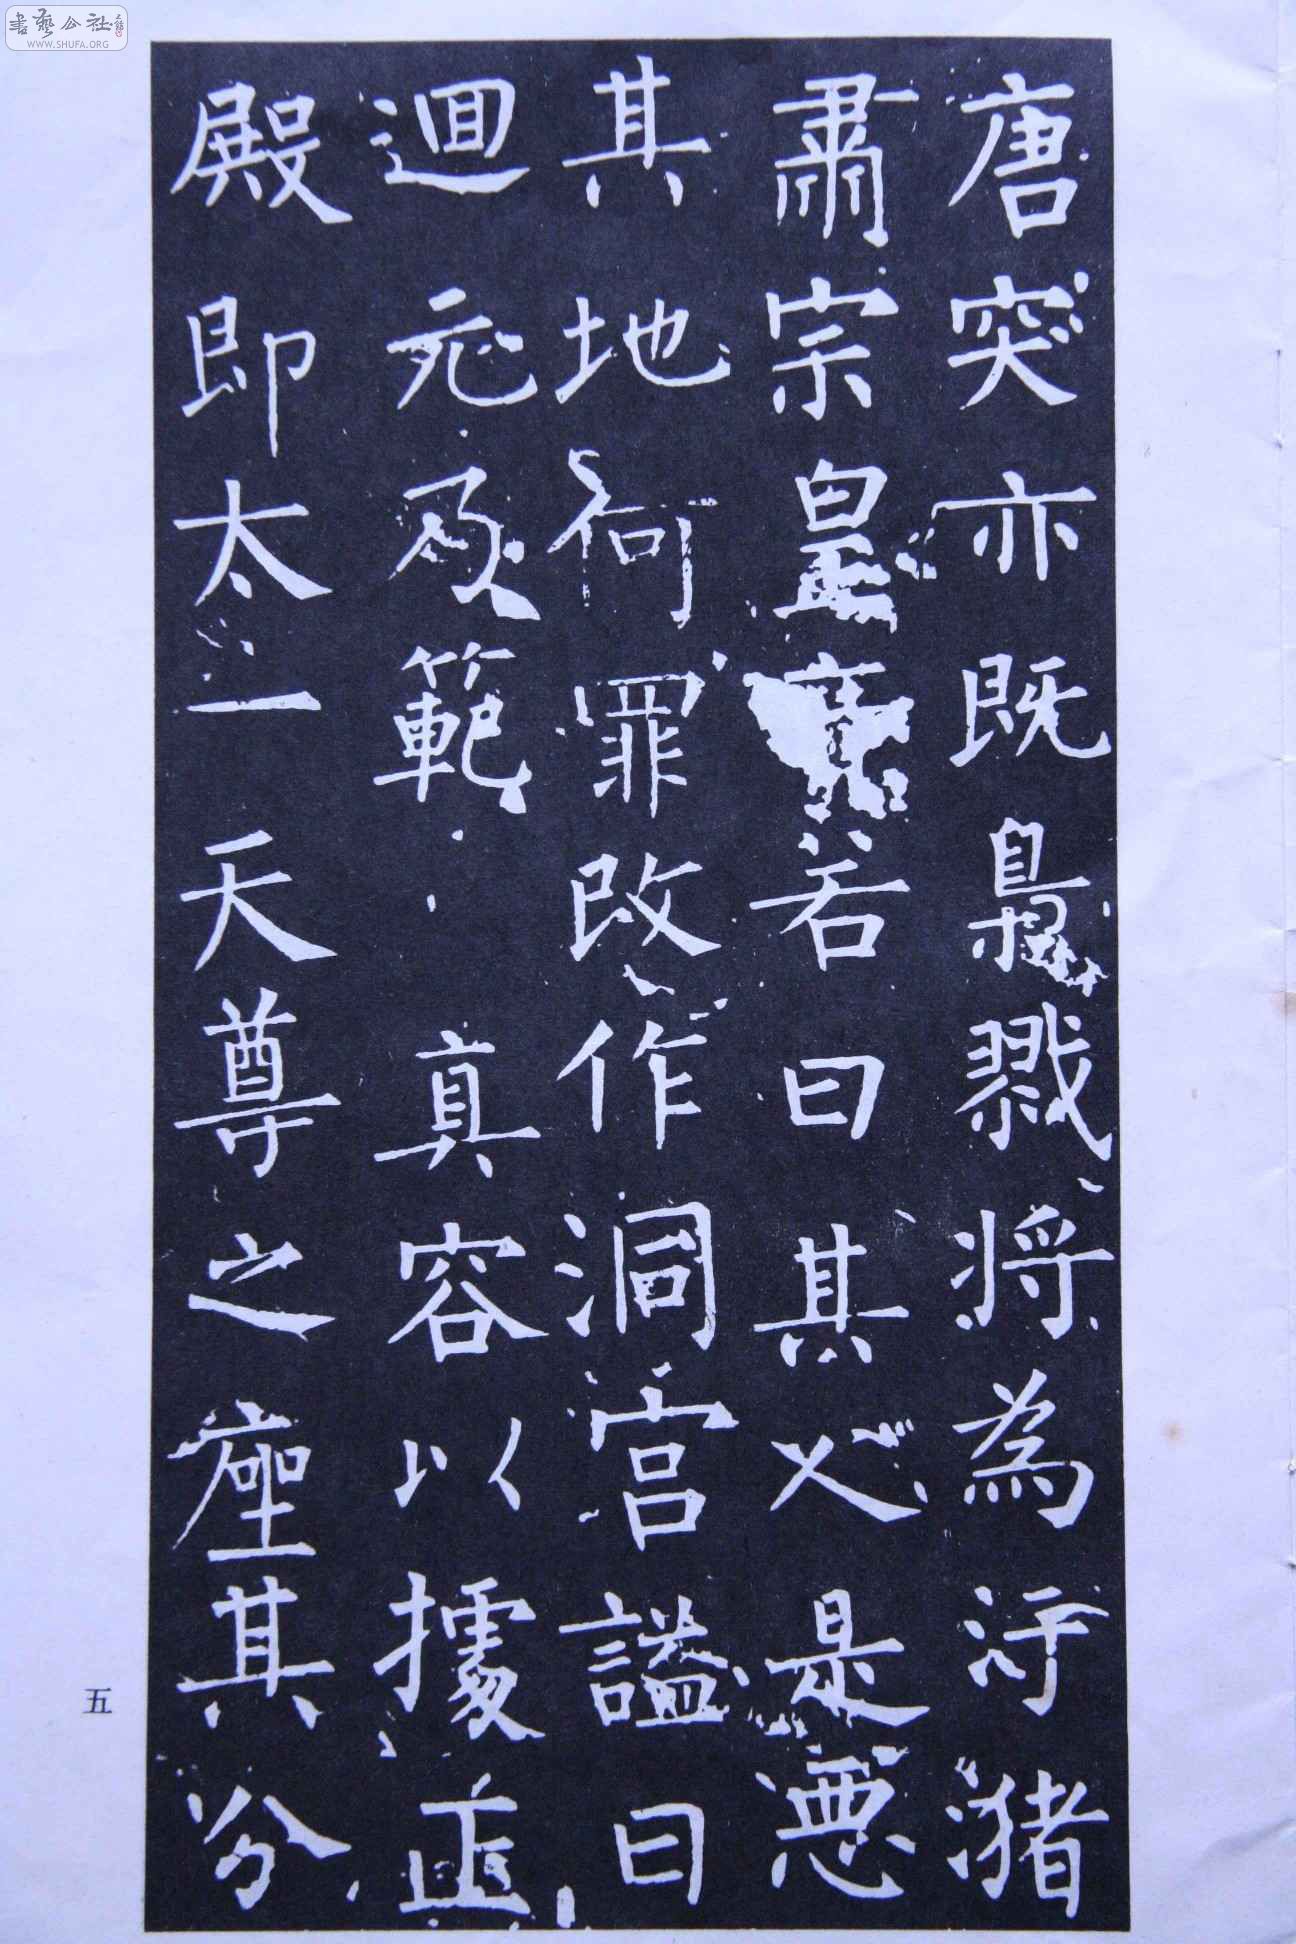 書藝公社
WWW.SHUFA.ORG
唐突亦既梟戮将為汙猪
肅宗皇帝若曰其人是惡
其地何罪改作洞宫謚曰
迴元乃範真容以據正
殿即太一天尊之座其分
五